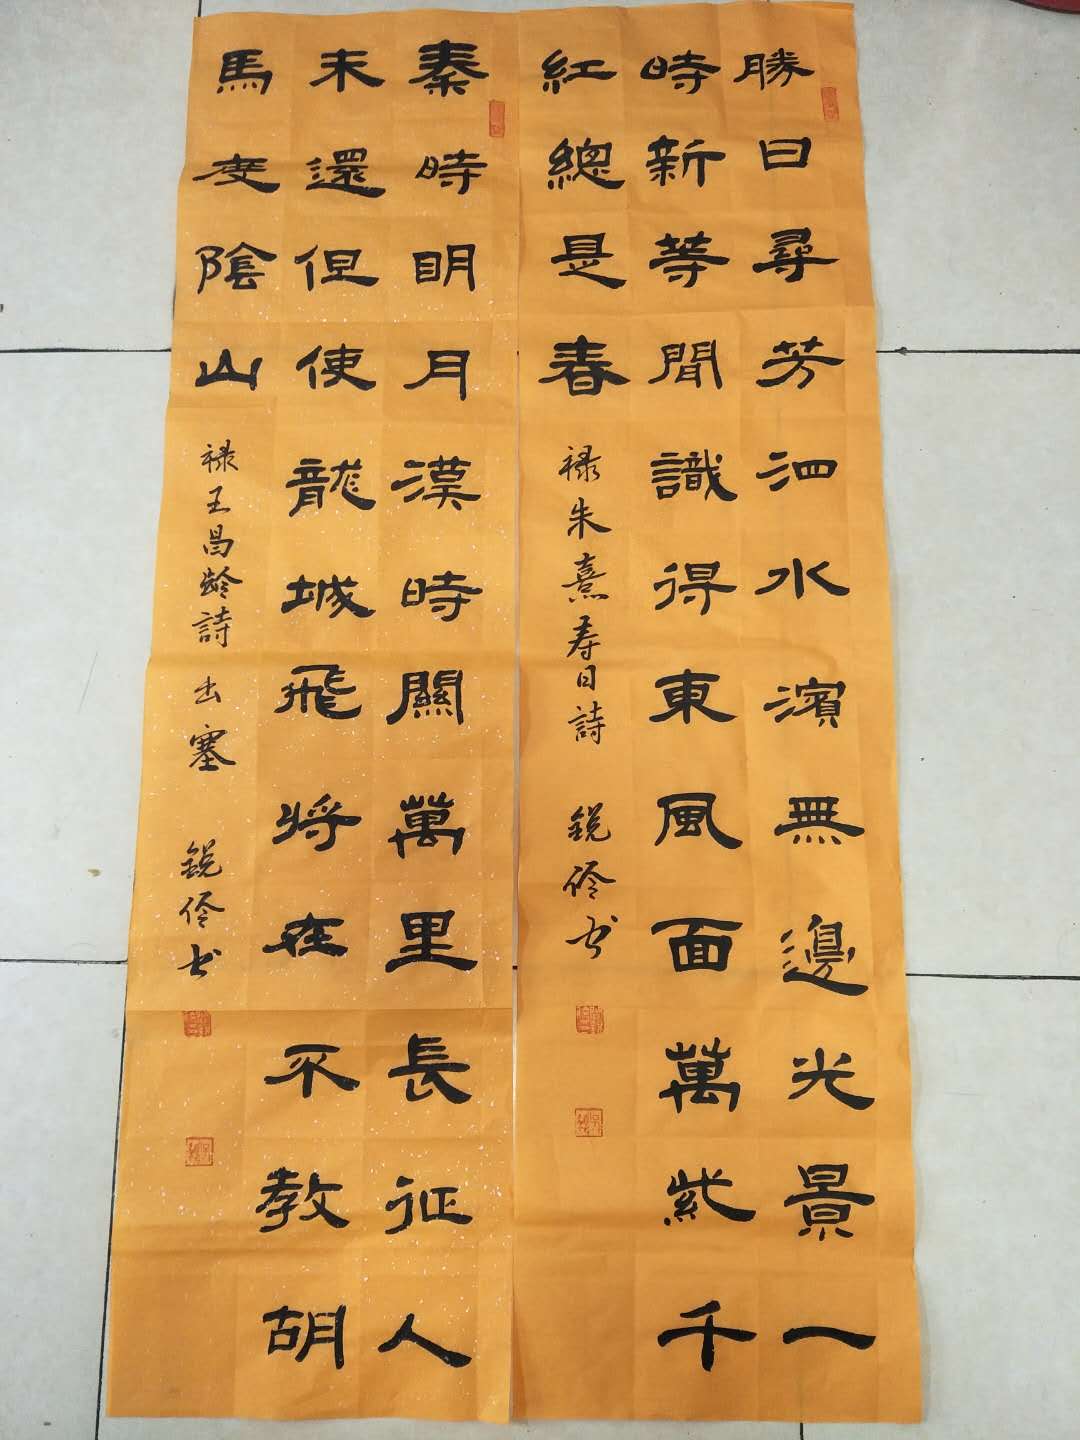 勝日尋芳泗水濱無邊光景一
時新等閒識得東風面萬紫千
紅總是春
禄朱熹春日詩 銳伶书
秦時明月漢時關萬里長征人
未還但使龍城飛将在不教胡
馬度陰山
禄王昌龄詩出塞 銳伶书